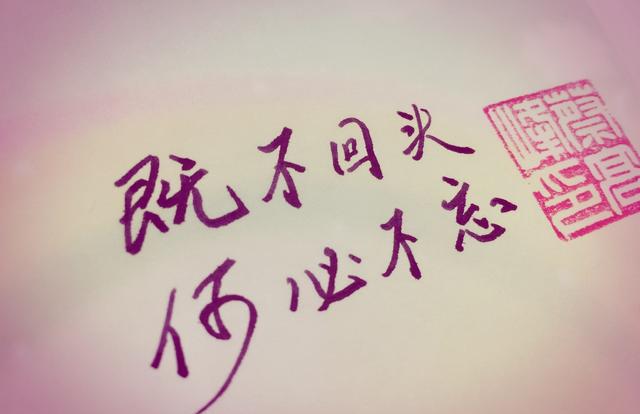 既不回头
何必不忘